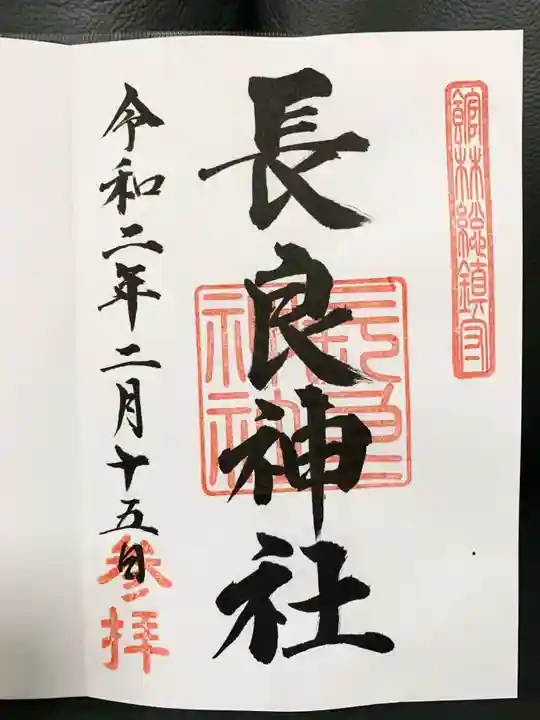 館林総鎮守
長良神社
令和二年二月十五日
参拝